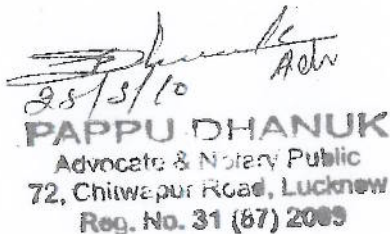 Adv
25/3/10
PAPPU DHANUK
Advocate & Notary Public
72, Chitwapur Road, Lucknow
Reg. No. 31 (87) 2009